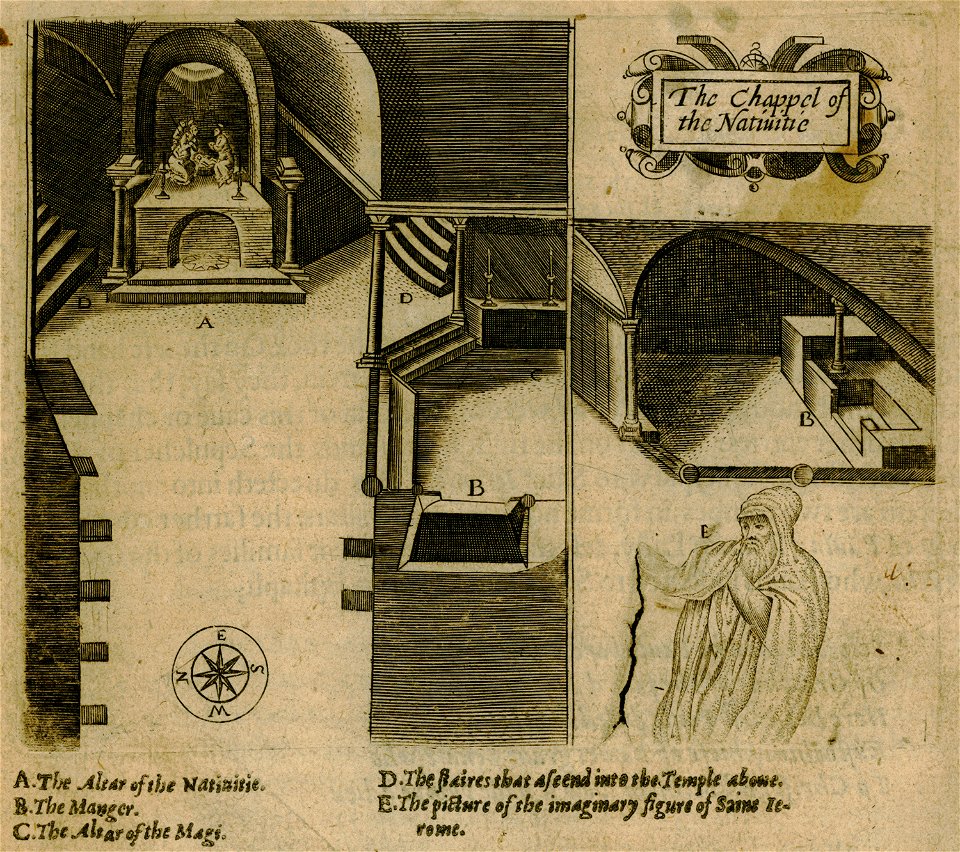 The Chappel of
the Natiuitie
D
A
D
C
B
B
E
E
S
W
N
A. The Altar of the Natiuitie.
B. The Manger.
C. The Altar of the Magi.
D. The ſtaires that aſcend into the Temple aboue.
E. The picture of the imaginary figure of Saint Ie-
rome.